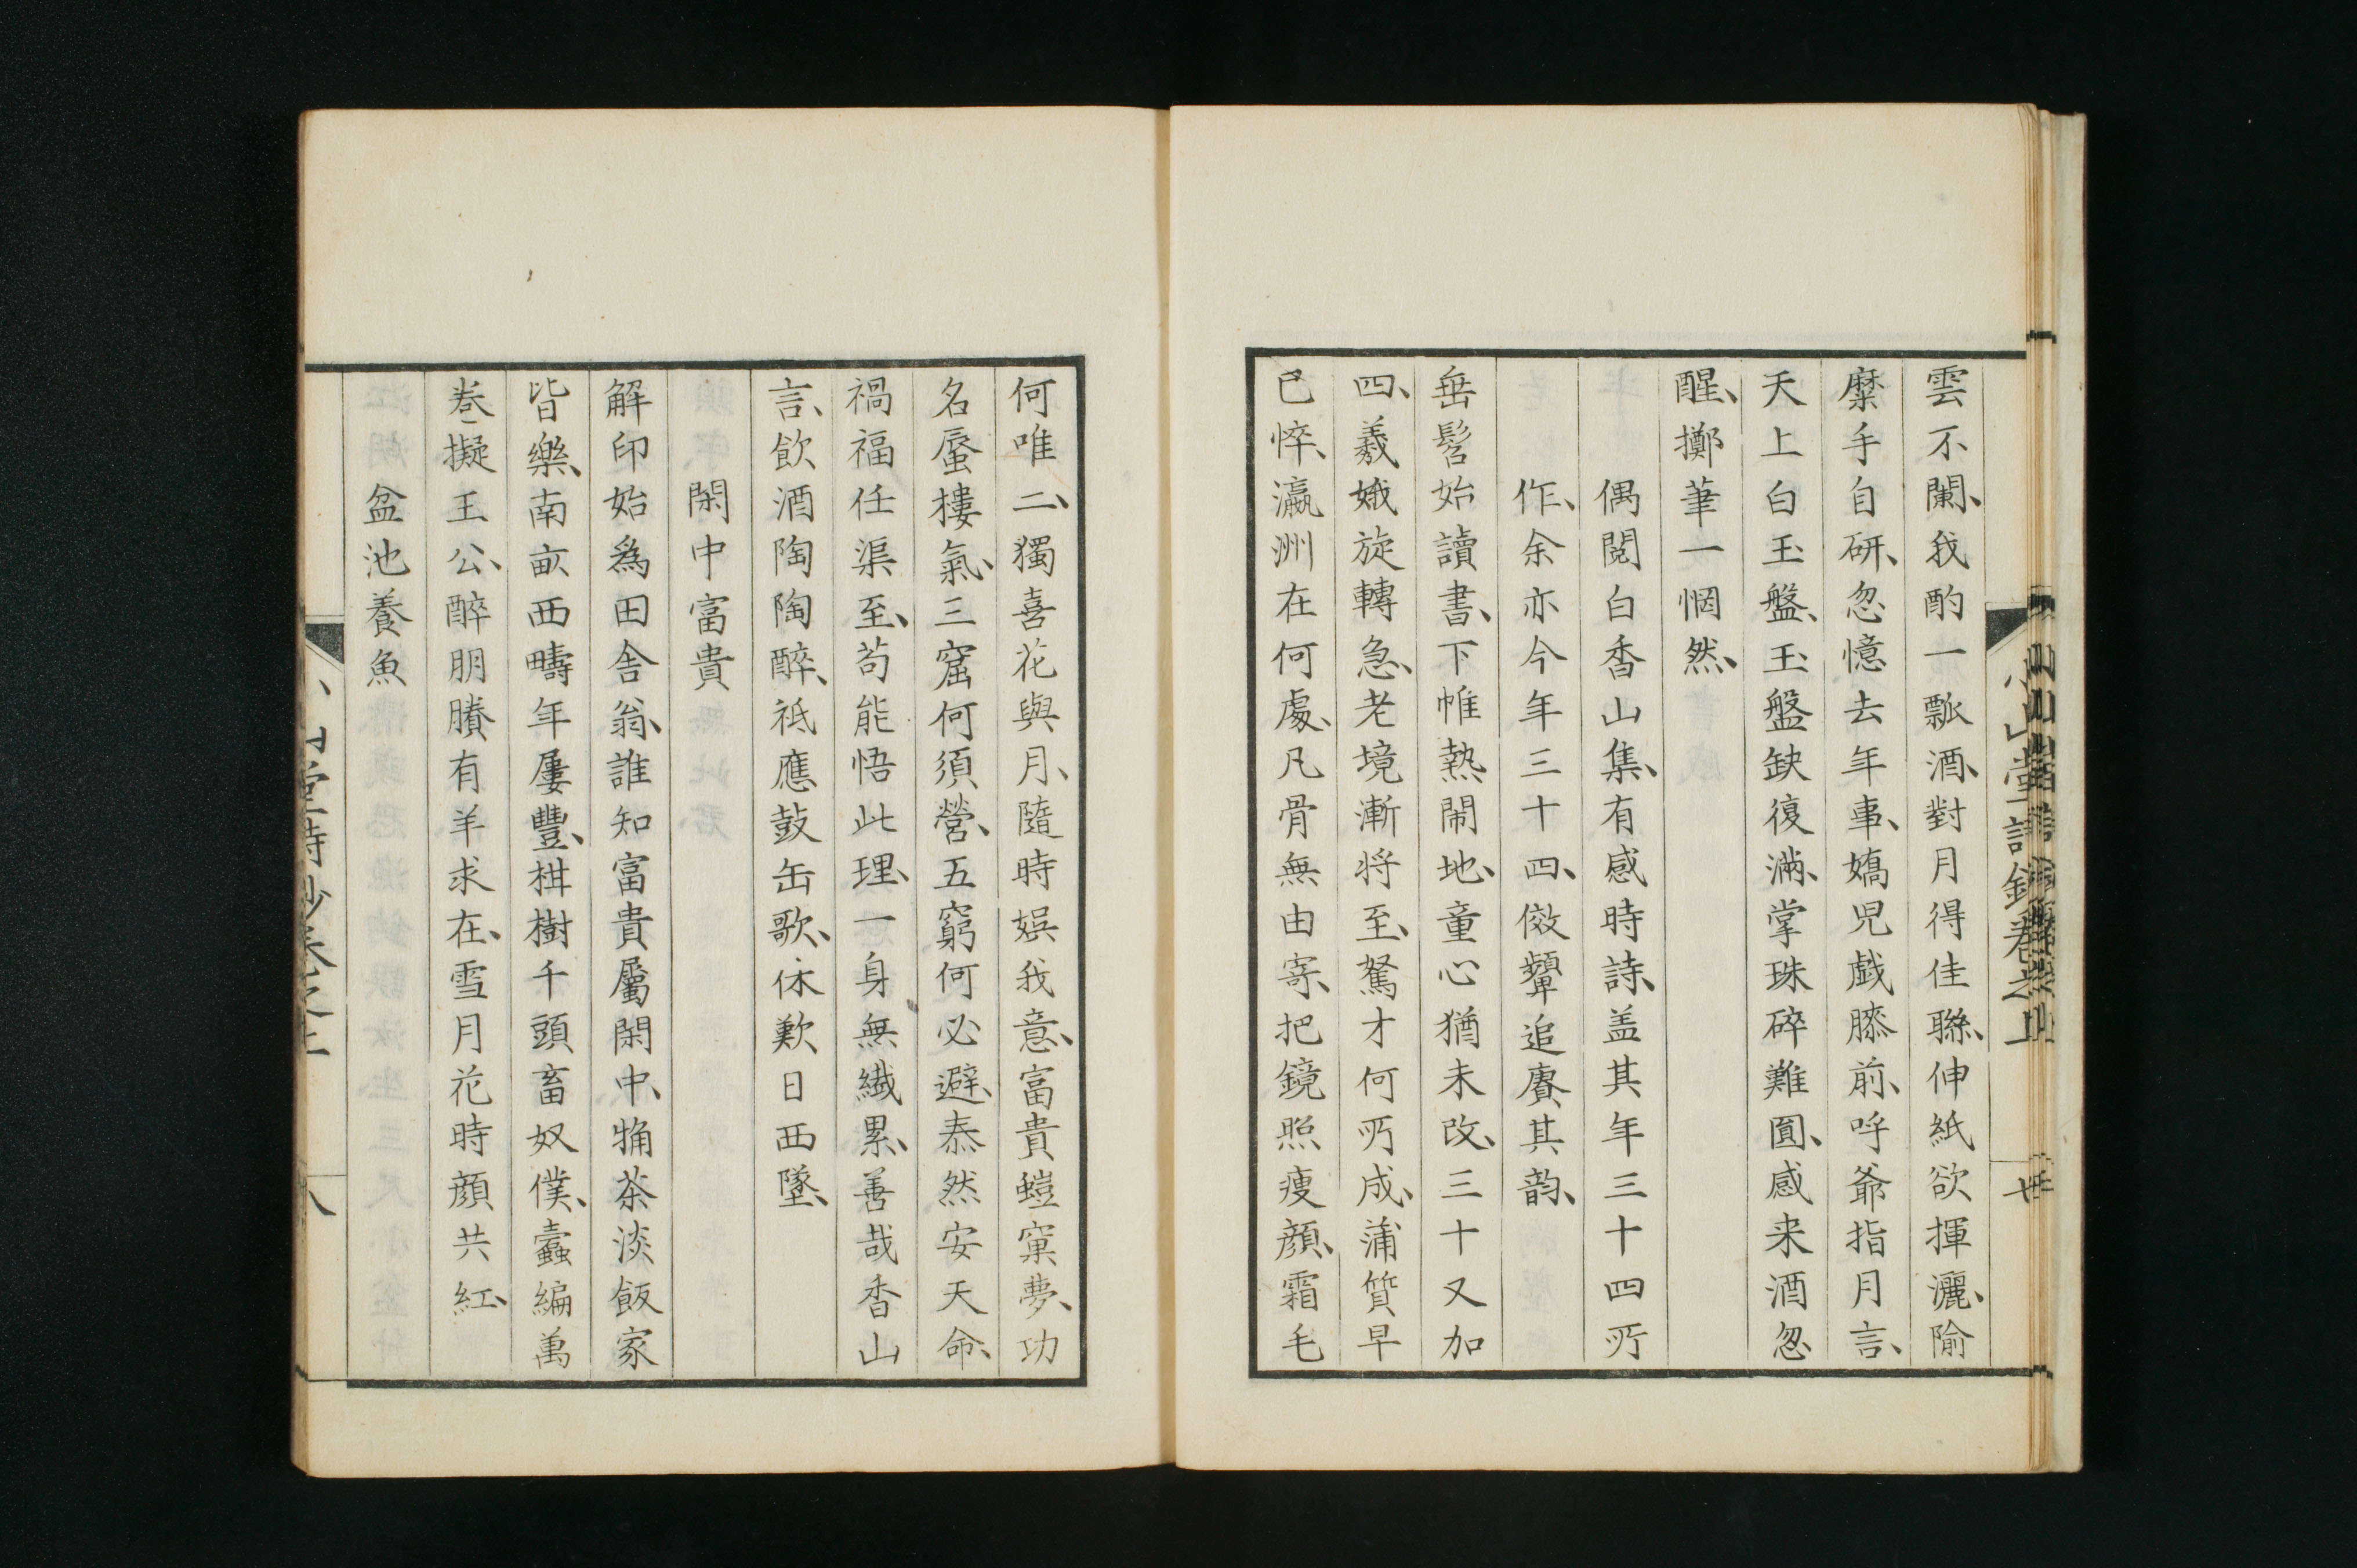 雲不闌、我酌一瓢酒、對月得佳聯、伸紙欲揮灑、隃
糜手自研、忽憶去年事、嬌児戯膝前、呼爺指月言、
天上白玉盤、玉盤缺復滿、掌珠碎難圓、感来酒忽
醒、擲筆一惘然、
偶閲白香山集、有感時詩、盖其年三十四所
作、余亦今年三十四、傚顰追賡其韵、
垂髫始讀書、下帷熱閙地、童心猶未改、三十又加
四、羲娥旋轉急、老境漸将至、駑才何所成、蒲質早
已悴、瀛洲在何處、凡骨無由寄、把鏡照痩顔、霜毛
何唯二、獨喜花與月、隨時娯我意、富貴螘窠夢、功
名蜃樓氣、三窟何須營、五窮何必避、泰然安天命、
禍福任渠至、苟能悟此理、一身無纎累、善哉香山
言、飲酒陶陶醉、祗應鼓缶歌、休歎日西墜、
閑中富貴
解印始為田舎翁、誰知富貴屬閑中、觕茶淡飯家
皆樂、南畝西疇年屢豐、柑樹千頭畜奴僕、蠹編萬
巻擬王公、醉朋賸有羊求在、雪月花時顔共紅、
盆池養魚
山堂詩鈔巻之上
七
堂詩鈔巻之上
八